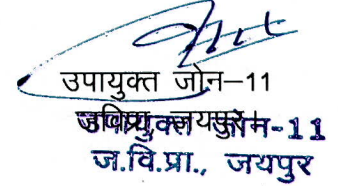 उपायुक्त जोन–11
जविप्रा, जयपुर।
उपायुक्त जोन-11
ज.वि.प्रा., जयपुर